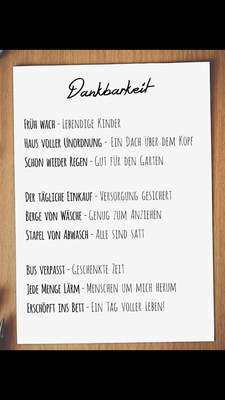 Dankbarkeit
Früh wach - Lebendige Kinder
Haus voller Unordnung - Ein Dach über dem Kopf
Schon wieder Regen - Gut für den Garten
Der tägliche Einkauf - Versorgung gesichert
Berge von Wäsche - Genug zum Anziehen
Stapel von Abwasch - Alle sind satt
Bus verpasst - Geschenkte Zeit
Jede Menge Lärm - Menschen um mich herum
Erschöpft ins Bett - Ein Tag voller Leben!